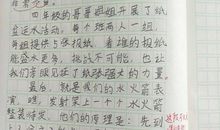 四年级的哥哥姐姐开展了纸
盆运水活动,每个班两人一组,
每组提供七张报纸,看谁的报纸
能盆水多,挑战不可能,也让
我们亲眼见证了纸张强大的力量。
最后,就是我们的水火箭表
演,瞧,发射架上一个个水火箭
整装待发,他们的原理是:先到